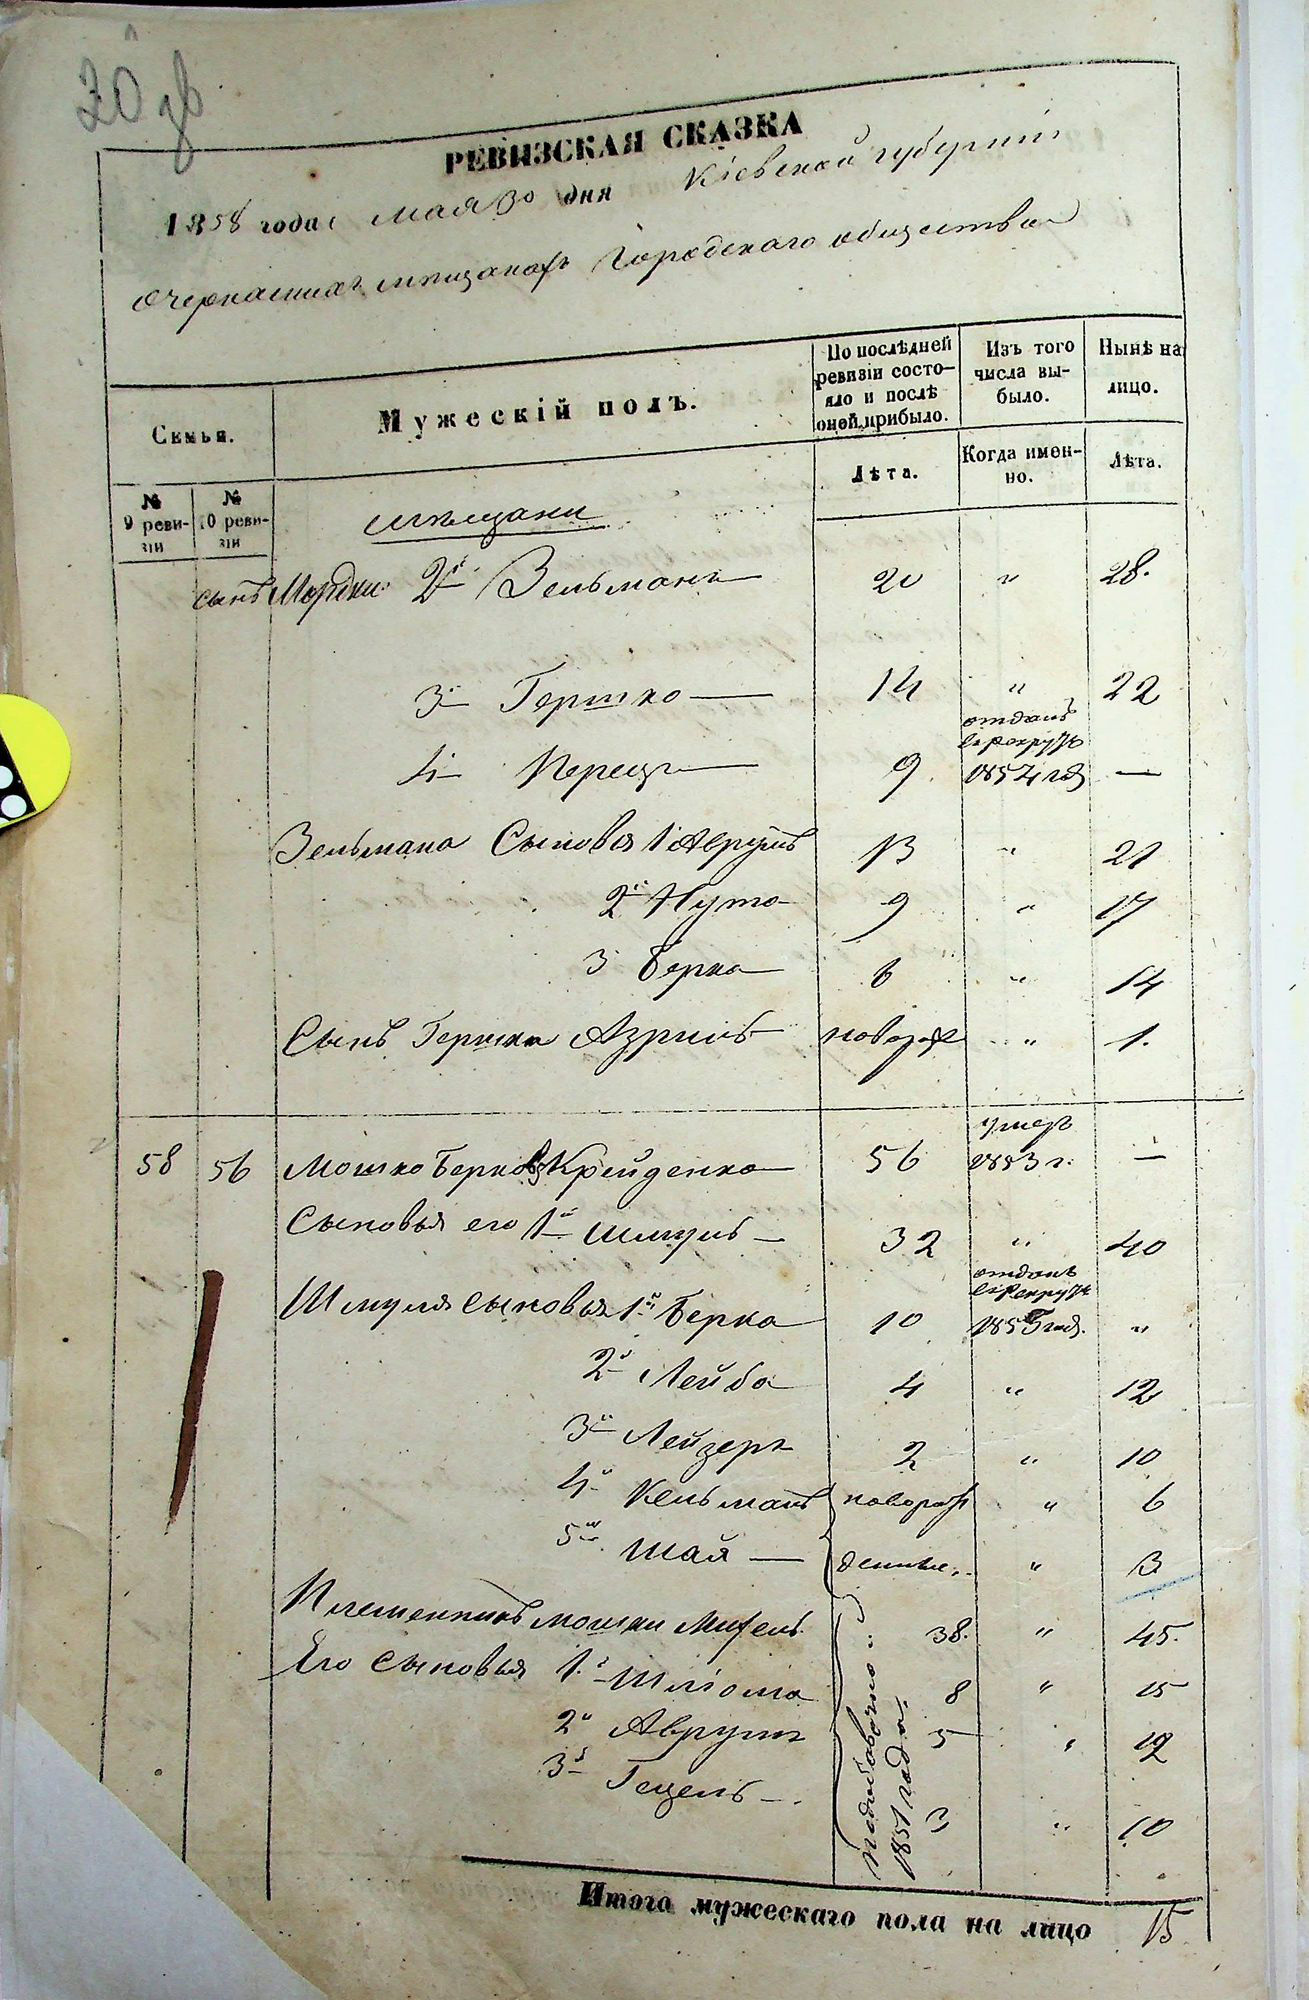 РЕВИЗСКАЯ СКАЗКА
1858 года мая 30 дня Кіевской губерніи
о черкасскихъ мещанахъ Городскаго общества
Семья.
Мужескій полъ.
По послѣдней ревизіи состо-
яло и послѣ
оной прибыло.
Изъ того
числа вы-
было.
Нынѣ на
лицо.
Лѣта.
Когда имен-
но.
Лѣта.
№
9 реви-
зіи
№
10 реви-
зіи
мещани
сынъ Мордки 2й Зельманъ 20 " 28.
3й Гершко 14 " 22
4й Перецъ 9 отданъ
в рекруты
1854 год —
Зельмана Сыновья 1 Аврумъ 13 " 21
2й Нута 9 " 17
3 Берко 6 " 14
Сынъ Гершки Азриль новорож " 1.
58 56 Мошко Берков Крейденко 56 умеръ
1853 г. —
Сыновья его 1й Шмуль 32 " 40
Шмуля сыновья 1й Берко 10 отданъ
в рекруты
1855 год. "
2й Лейба 4 " 12
3й Лейзеръ 2 " 10
4й Кельманъ новорож " 6
5й Шая денные " 3
Племенникъ мошки Михель 38. " 45.
Его сыновья 1й Шлiома 8 " 15
2й Аврумъ 5 " 12
3й Гецель 3 " 10
подобавочно
1851 года.
Итого мужескаго пола на лицо 15